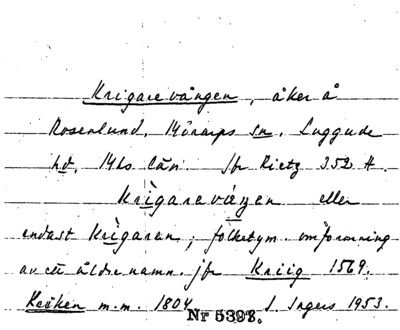 Krigarevången, åker å
Rosenlund, Mörarps sn, Luggude
hd, Mhs län. Jfr Rietz 352 #.
Krìgareva̡ŋen eller
endast Krìgaren; folketym. omformning
av ett äldre namn. jfr Kriig 1569.
m.m. 1804. J. Ingers 1953.
Nr 5398.